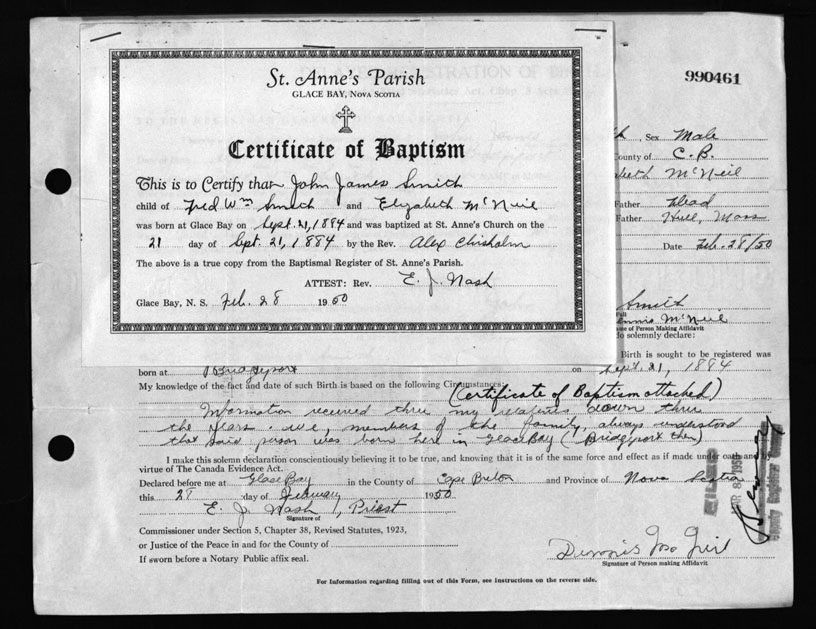 St. Anne's Parish
GLACE BAY, NOVA SCOTIA
Certificate of Baptism
This is to Certify that John James Smith
child of Fred Wm Smith and Elizabeth McNeil
was born at Glace Bay on Sept. 21, 1884 and was baptized at St. Anne's Church on the
21 day of Sept. 21, 1884 by the Rev. Alex Chisholm
The above is a true copy from the Baptismal Register of St. Anne's Parish.
ATTEST: Rev. E. J. Nash
Glace Bay, N. S. Feb. 28 1950
990461
Sex Male
County of C. B.
McNeil
Father Dead
Father Hull, Mass
Date Feb. 28/50
Smith
Dennis McNeil
Name of Person Making Affidavit
do solemnly declare:
Birth is sought to be registered was
born at Bridgeport on Sept. 21, 1884
My knowledge of the fact and date of such Birth is based on the following Circumstances:
(Certificate of Baptism attached)
Information received thru my relatives down thru
the years. We, members of the family, always understood
that said person was born here in Glace Bay (Bridgeport then)
I make this solemn declaration conscientiously believing it to be true, and knowing that it is of the same force and effect as if made under oath and by
virtue of The Canada Evidence Act.
Declared before me at Glace Bay in the County of Cape Breton and Province of Nova Scotia
this 28 day of February 1950
E. J. Nash, Priest
Signature of
Commissioner under Section 5, Chapter 38, Revised Statutes, 1923,
or Justice of the Peace in and for the County of
If sworn before a Notary Public affix seal.
Dennis McNeil
Signature of Person making Affidavit
For Information regarding filling out of this Form, see Instructions on the reverse side.
MAR 8 1950